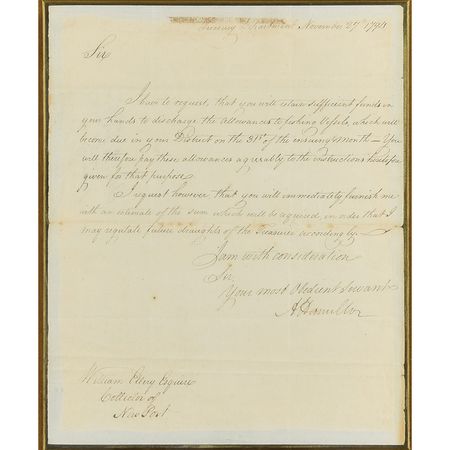 Treasury Department November 27 1794
Sir
I have to request, that you will retain sufficient funds in
your hands to discharge the allowances to fishing Vessels, which will
become due in your District on the 31st of the ensuing month — You
will therefore pay these allowances agreeably to the instructions heretofore
given for that purpose.
I request however that you will immediately furnish me
with an estimate of the sum which will be required, in order that I
may regulate future draughts of the Treasurer accordingly. —
I am with consideration
Sir,
Your most Obedient Servant
A Hamilton
William Ellery Esquire
Collector of
New Port